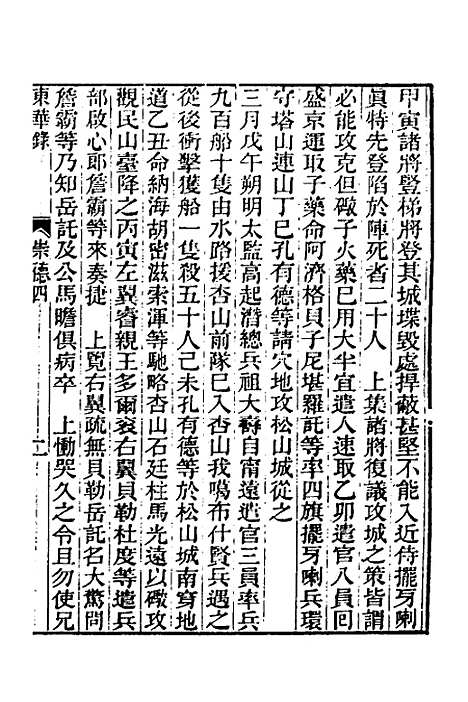 甲寅諸將豎梯將登其城堞毀處捍蔽甚堅不能入近侍擺牙喇
眞特先登陷於陣死者二十人　上集諸將復議攻城之策皆謂
必能攻克但礮子火藥已用大半宜遣人速取乙卯遣官八員囘
盛京運取子藥命阿濟格貝子尼堪羅託等率四旗擺牙喇兵環
守塔山連山丁巳孔有德等請穴地攻松山城從之
三月戊午朔明太監高起潛總兵祖大壽自甯遠遣官三員率兵
九百船十隻由水路援杏山前隊巳入杏山我噶布什賢兵遇之
從後衝擊獲船一隻殺五十人己未孔有德等於松山城南穿地
道乙丑命納海胡密滋索渾等馳略杏山石廷柱馬光遠以礮攻
觀民山臺降之丙寅左翼睿親王多爾袞右翼貝勒杜度等遣兵
部啟心郎詹霸等來奏捷　上覽右翼疏無貝勒岳託名大驚問
詹霸等乃知岳託及公馬瞻俱病卒　上慟哭久之令且勿使兄
東華錄
崇德四